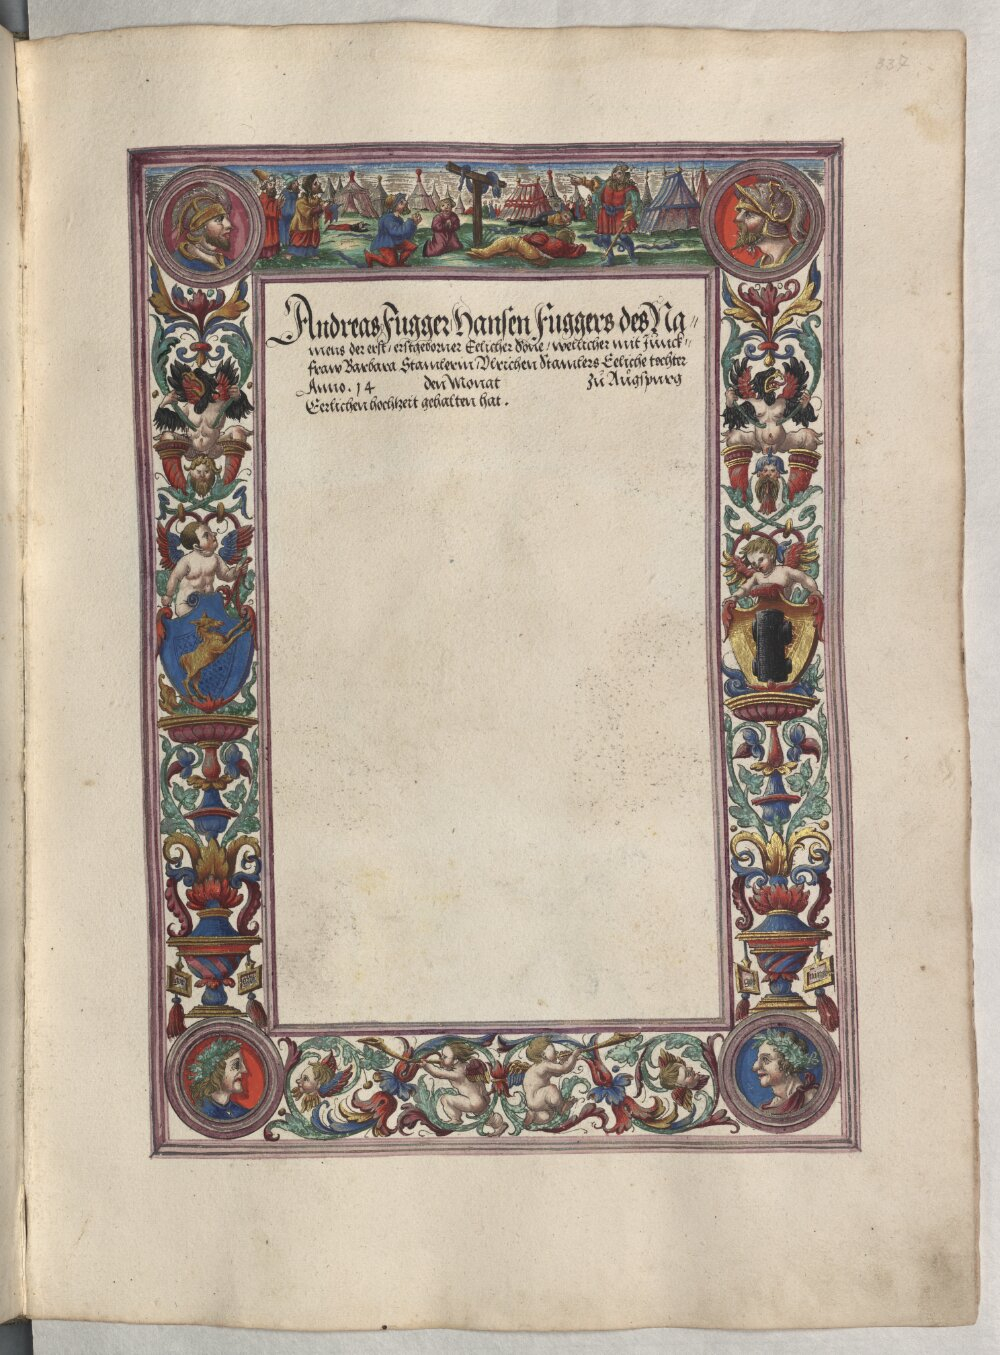 337
Andreas Fugger Hansen Fuggers des Na⸗
mens der erst / erstgeborner Eelicher Sone / wellicher mit junck⸗
fraw Barbara Stamlerin Ulrichen Stamlers Eeliche tochter
Anno . 14 den Monat zů Augspurg
Eerlichen hochzeit gehalten hat .